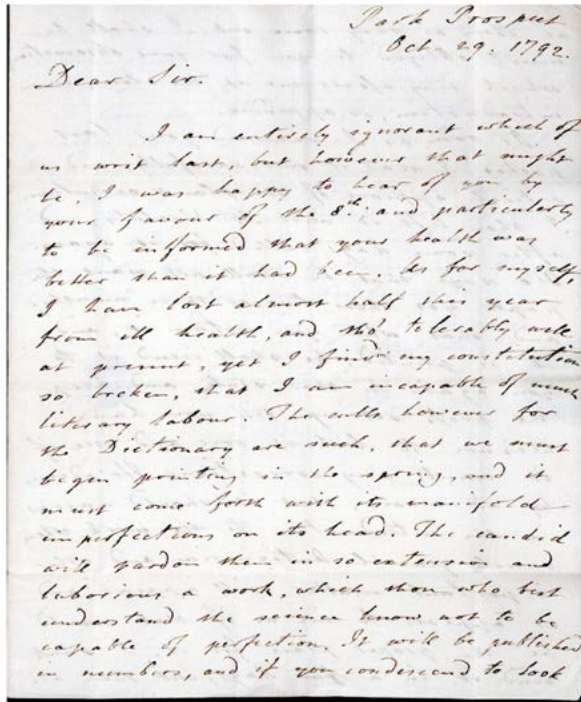 Park Prospect
Oct 29. 1792.
Dear Sir.
I am entirely ignorant which of
us writ last, but however that might
be, I was happy to hear of you by
your favour of the 8th; and particularly
to be informed that your health was
better than it had been. As for myself,
I have lost almost half this year
from ill health, and tho' tolerably well
at present, yet I find my constitution
so broken, that I am incapable of much
literary labour. The calls however for
the Dictionary are such, that we must
begin printing in the spring, and it
must come forth with its manifold
imperfections on its head. The candid
will pardon them in so extensive and
laborious a work, which those who best
understand the science know not to be
capable of perfection. It will be published
in numbers, and if you condescend to look